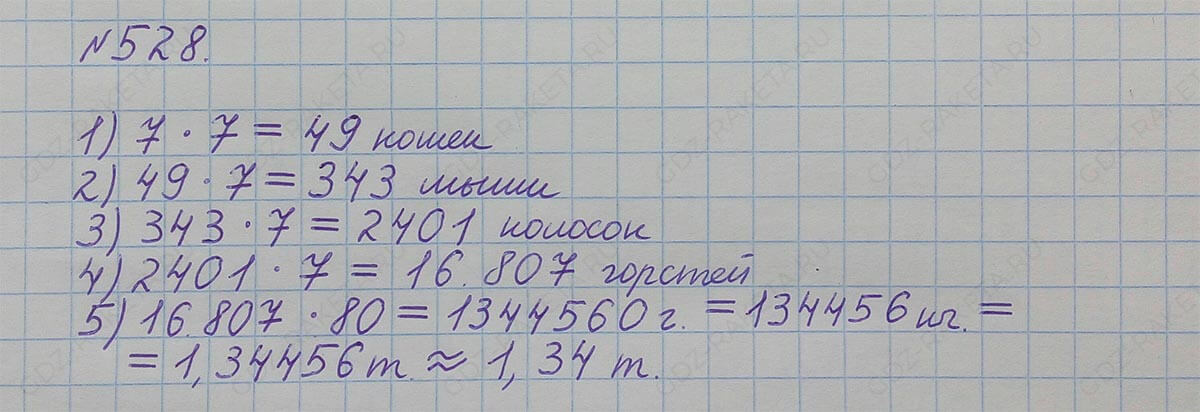 №528.
1) 7 · 7 = 49 кошек
2) 49 · 7 = 343 мыши
3) 343 · 7 = 2401 колосок
4) 2401 · 7 = 16.807 горстей
5) 16.807 · 80 = 1344560 г. = 134456 кг. =
= 1,34456 т. ≈ 1,34 т.